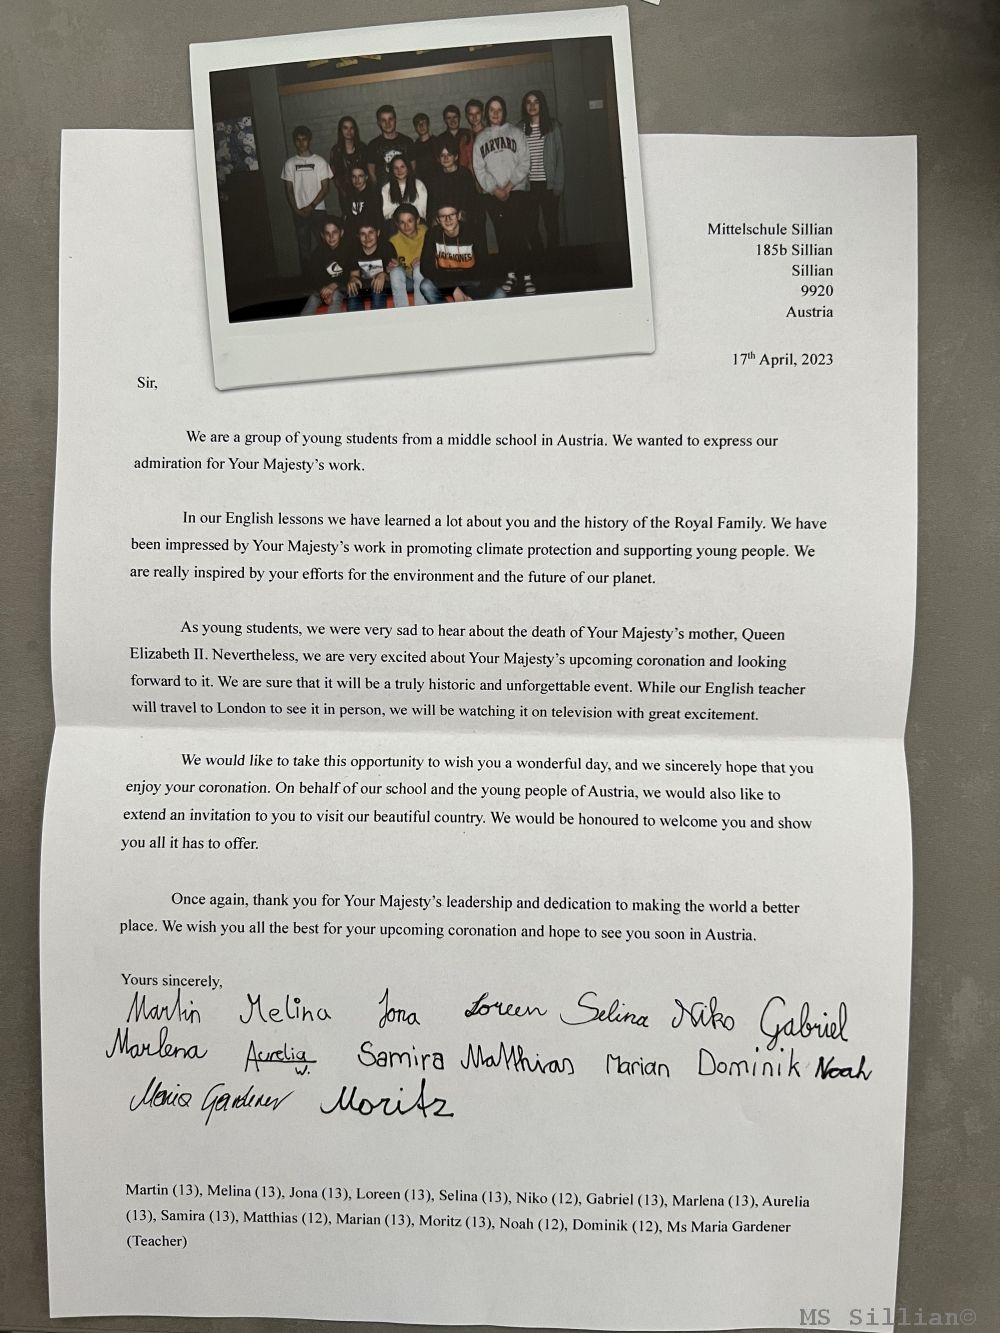 HARVARD
Mittelschule Sillian
185b Sillian
Sillian
9920
Austria
17th April, 2023
Sir,
We are a group of young students from a middle school in Austria. We wanted to express our
admiration for Your Majesty's work.
In our English lessons we have learned a lot about you and the history of the Royal Family. We have
been impressed by Your Majesty's work in promoting climate protection and supporting young people. We
are really inspired by your efforts for the environment and the future of our planet.
As young students, we were very sad to hear about the death of Your Majesty's mother, Queen
Elizabeth II. Nevertheless, we are very excited about Your Majesty's upcoming coronation and looking
forward to it. We are sure that it will be a truly historic and unforgettable event. While our English teacher
will travel to London to see it in person, we will be watching it on television with great excitement.
We would like to take this opportunity to wish you a wonderful day, and we sincerely hope that you
enjoy your coronation. On behalf of our school and the young people of Austria, we would also like to
extend an invitation to you to visit our beautiful country. We would be honoured to welcome you and show
you all it has to offer.
Once again, thank you for Your Majesty's leadership and dedication to making the world a better
place. We wish you all the best for your upcoming coronation and hope to see you soon in Austria.
Yours sincerely,
Martin Melina Jona Loreen Selina Niko Gabriel
Marlena Aurelia W. Samira Matthias Marian Dominik Noah
Maria Gardener Moritz
Martin (13), Melina (13), Jona (13), Loreen (13), Selina (13), Niko (12), Gabriel (13), Marlena (13), Aurelia
(13), Samira (13), Matthias (12), Marian (13), Moritz (13), Noah (12), Dominik (12), Ms Maria Gardener
(Teacher)
MS Sillian©